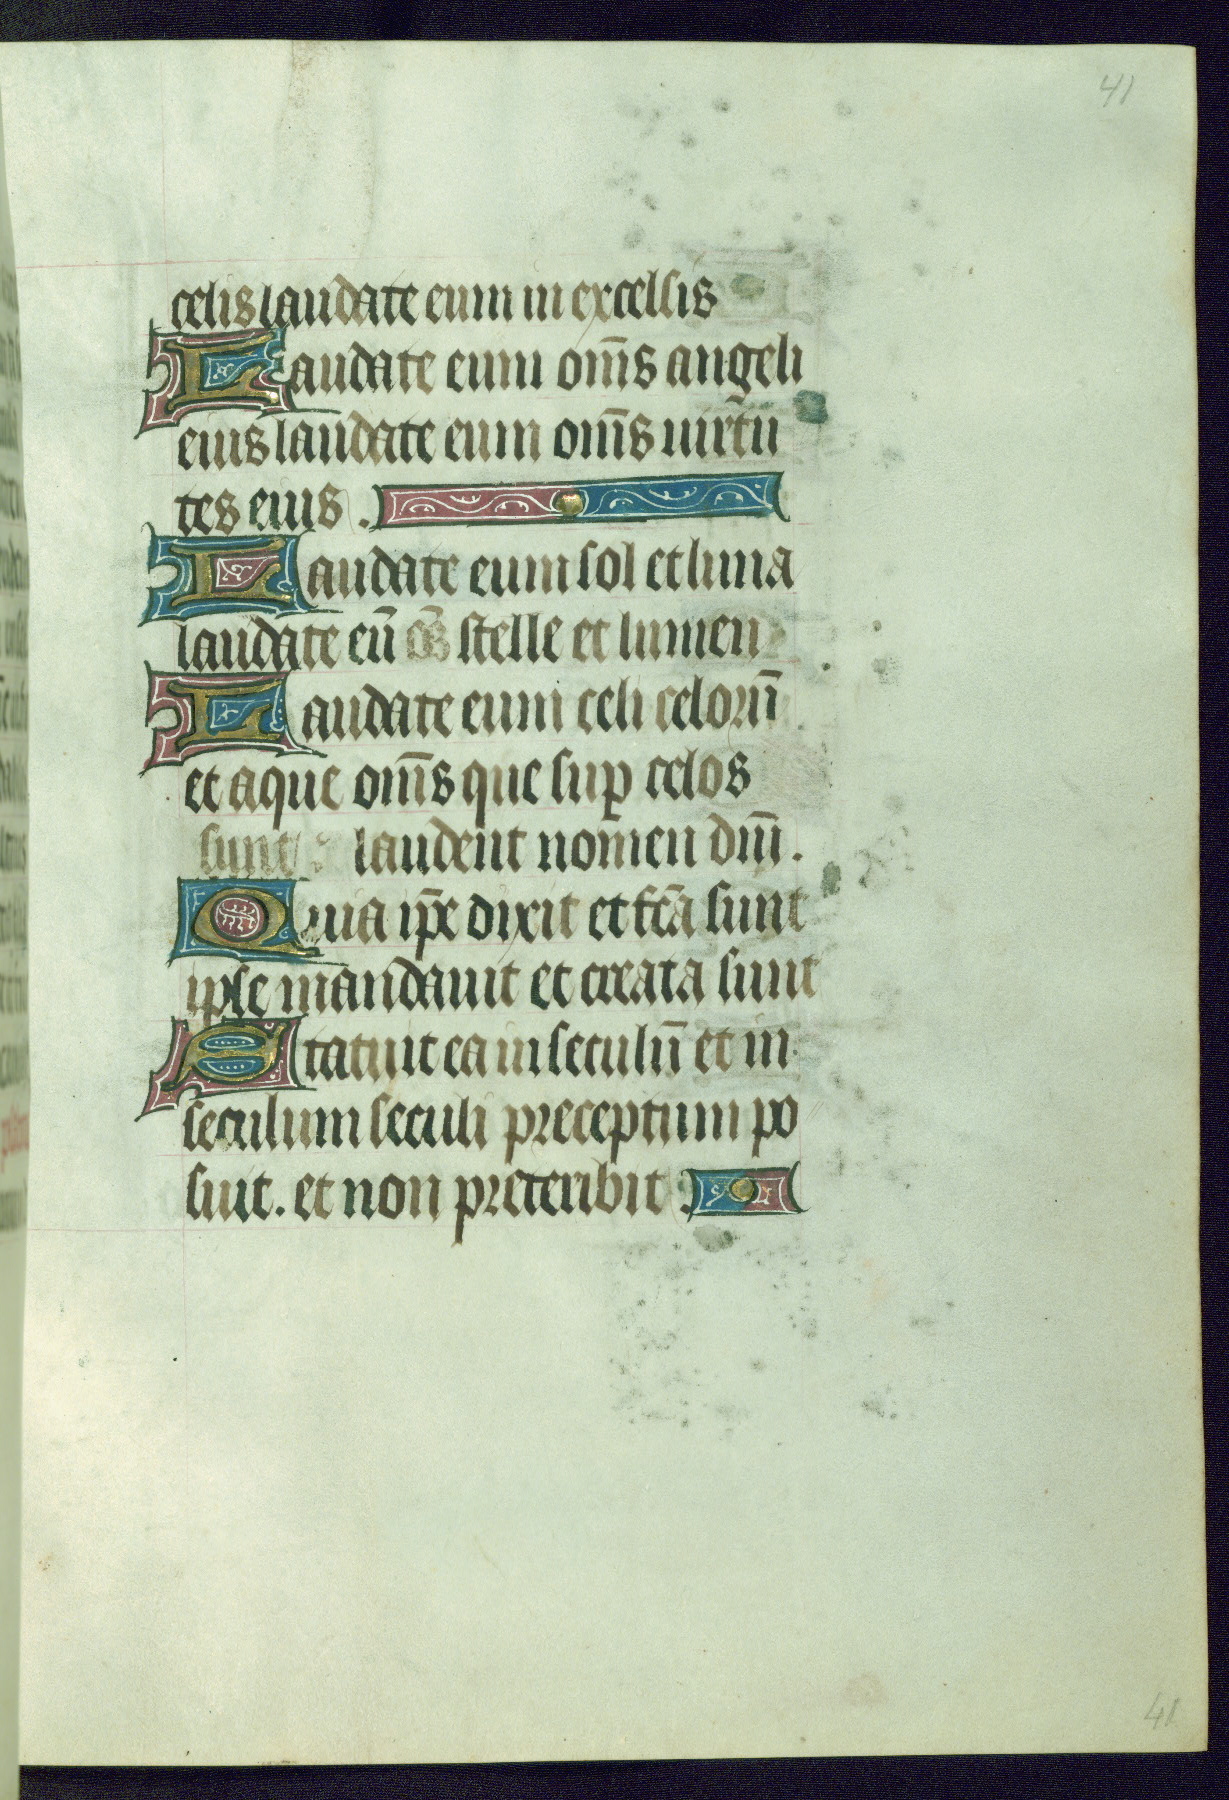 41
celis laudate eum in excelsis
Laudate eum om̅s angeli
eius laudate eum om̅s uirtu
tes eius.
Laudate eum sol et luna
laudate eū om̅s stelle et lumen
Laudate eum celi celorū
et aque om̅s que suꝑ celos
sunt laudent nomen dn̅i.
Quia ip̅e dixit et fc̅a sunt
ipse mandauit et creata sunt
Statuit ea in seculū et in
seculum seculi preceptum po
suit. et non preteribit
41